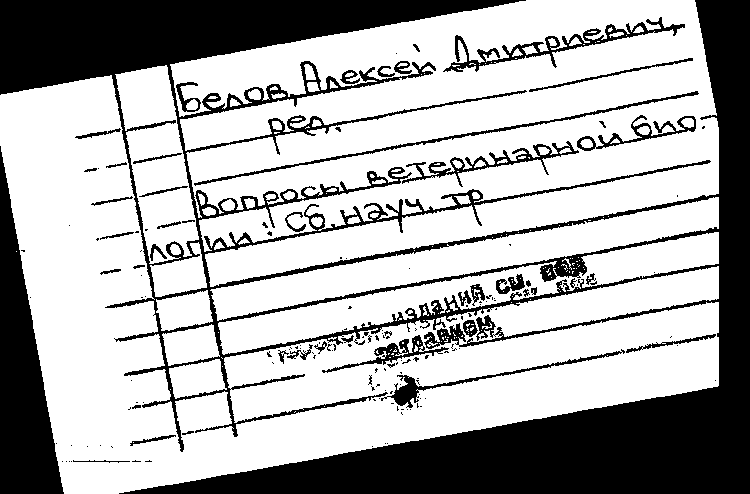 Белов, Алексей Дмитриевич,
ред.
Вопросы ветеринарной био-
логии: Сб. науч. тр
изданий см. под
заглавием.